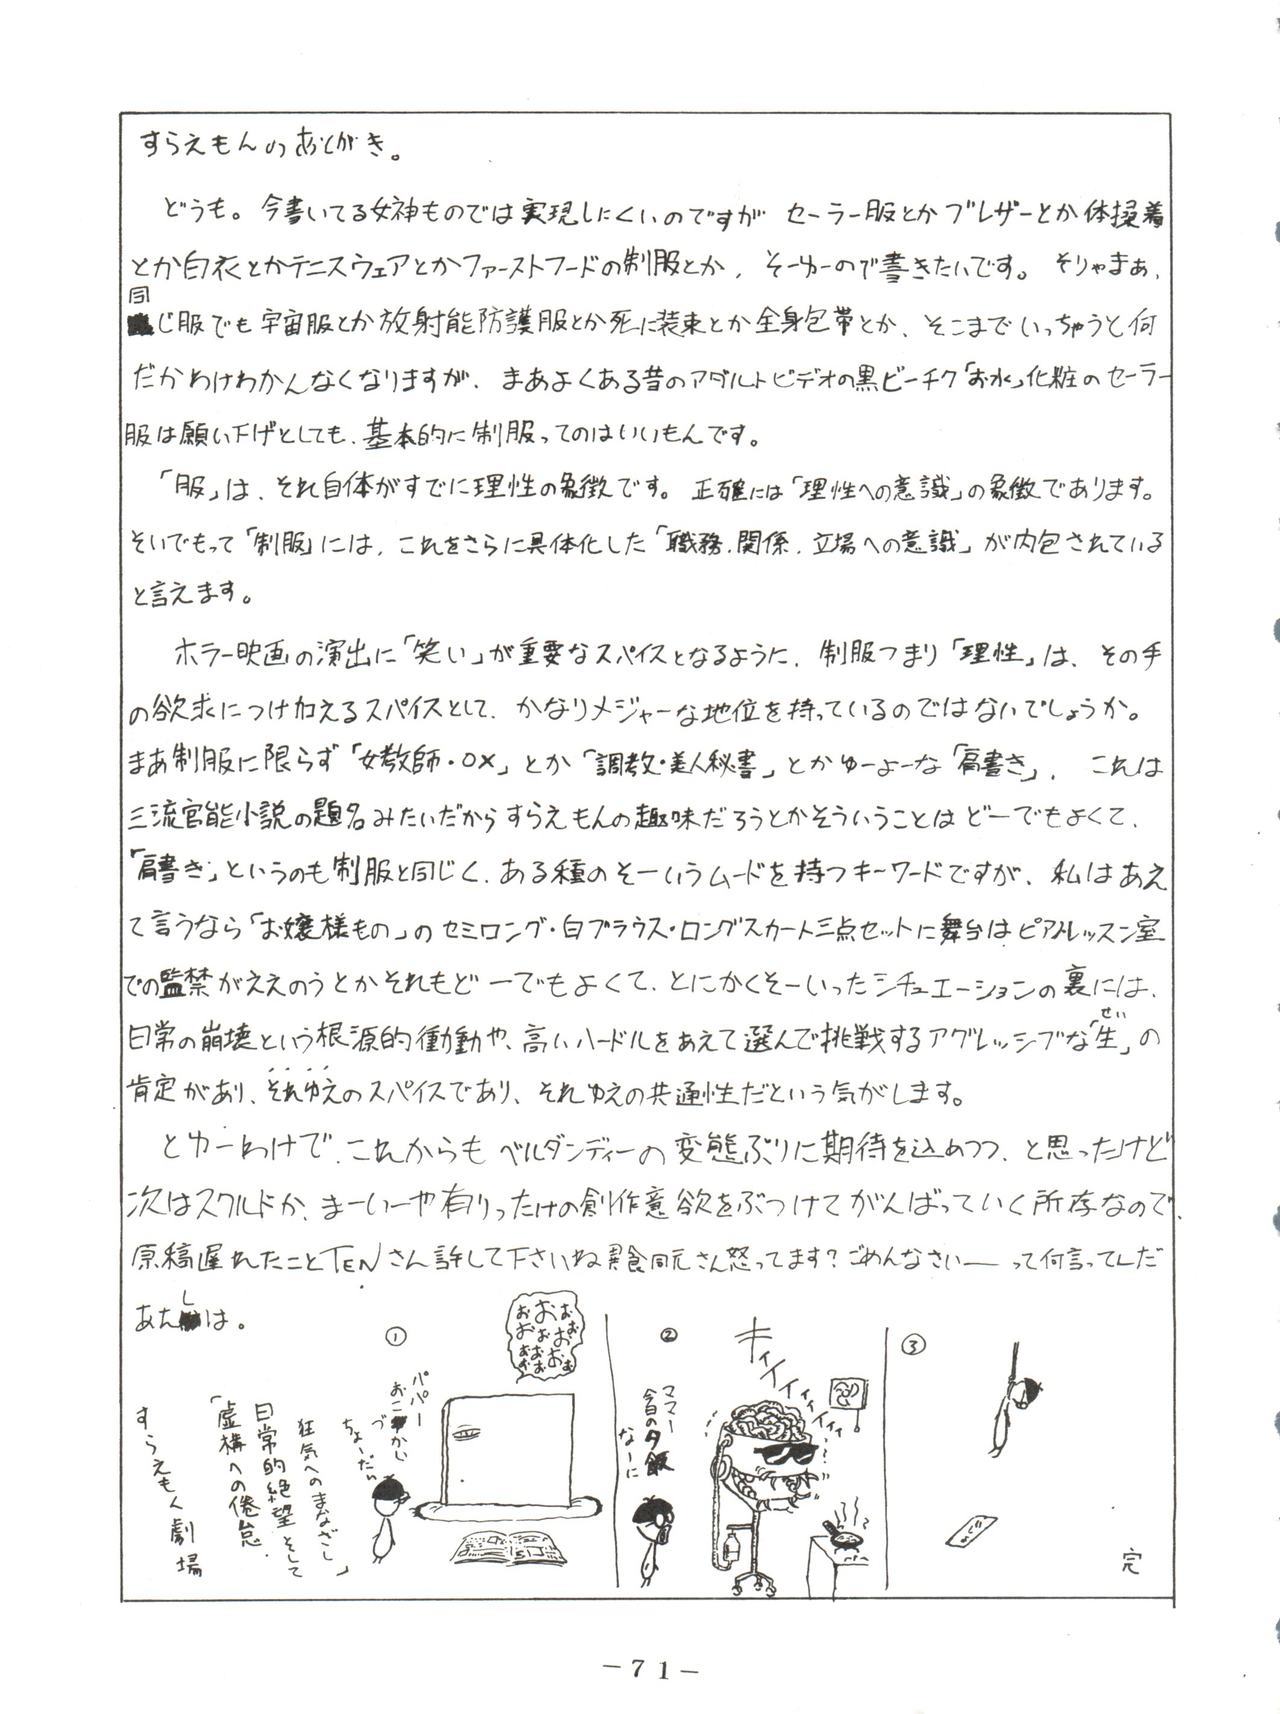 すらえもんのあとがき。
どうも。今書いてる女神ものでは実現しにくいのですが セーラー服とかブレザーとか体操着
とか白衣とかテニスウェアとかファーストフードの制服とか、そーゆーので書きたいです。そりゃまぁ、
同じ服でも宇宙服とか放射能防護服とか死に装束とか全身包帯とか、そこまでいっちゃうと何
だかわけわかんなくなりますが、まあよくある昔のアダルトビデオの黒ビーチク「お水」化粧のセーラー
服は願い下げとしても、基本的に制服ってのはいいもんです。
「服」は、それ自体がすでに理性の象徴です。正確には「理性への意識」の象徴であります。
そいでもって「制服」には、これをさらに具体化した「職務、関係、立場への意識」が内包されている
と言えます。
ホラー映画の演出に「笑い」が重要なスパイスとなるように、制服つまり「理性」は、その手
の欲求につけ加えるスパイスとして、かなりメジャーな地位を持っているのではないでしょうか。
まあ制服に限らず「女教師・○×」とか「調教・美人秘書」とかゆーよーな「肩書き」、これは
三流官能小説の題名みたいだからすらえもんの趣味だろうとかそういうことはどーでもよくて、
「肩書き」というのも制服と同じく、ある種のそーいうムードを持つキーワードですが、私はあえ
て言うなら「お嬢様もの」のセミロング・白ブラウス・ロングスカート三点セットに舞台はピアノレッスン室
での監禁がええのうとかそれもどーでもよくて、とにかくそーいったシチュエーションの裏には、
日常の崩壊という根源的衝動や、高いハードルをあえて選んで挑戦するアグレッシブな「生」の
せい
肯定があり、それゆえのスパイスであり、それゆえの共通性だという気がします。
とゆーわけで、これからもベルダンディーの変態ぶりに期待を込めつつ、と思ったけど
次はスクルドか、まーいーや有りったけの創作意欲をぶつけてがんばっていく所存なので、
原稿遅れたことTENさん許して下さいね 異食同元さん怒ってます?ごめんなさいーって何言ってんだ
あたしは。
①
おおおおおおおおおおおお
パパー
おこづかい
ちょーだい
②
ママー
今日の夕飯
なーに
キィイイイイイイイ
③
完
狂気へのまなざし」
日常的絶望そして
「虚構への倦怠、
すらえもく劇場
－71－